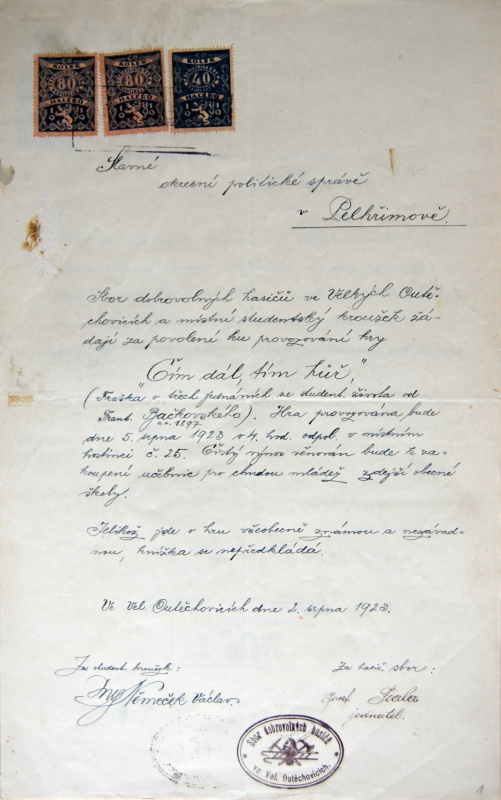 KOLEK
80
HALÉŘŮ
KOLEK
80
HALÉŘŮ
KOLEK
40
HALÉŘŮ
Slavné
okresní politické správě
v Pelhřimově.
Sbor dobrovolných hasičů ve Velkých Outě-
chovicích a místní studentský kroužek žá-
dají za povolení ku provozování hry
"Čím dál, tím hůř",
(Fraška o třech jednáních ze student. života od
Frant. Bačkovského). Hra provozována bude
dne 5. srpna 1923 o 4. hod. odpol. v místním
hostinci č. 25. Čistý výnos věnován bude k za-
koupení učebnic pro chudou mládež zdejší obecné
školy.
Jelikož jde o hru všeobecně známou a nezávad-
nou, knížka se nepředkládá.
Ve Vel. Outěchovicích dne 2. srpna 1923.
Za student. kroužek:
Za hasič. sbor:
Němeček Václav.
Josef
jednatel.
Sbor dobrovolných hasičů
ve Vel. Outěchovicích.
1